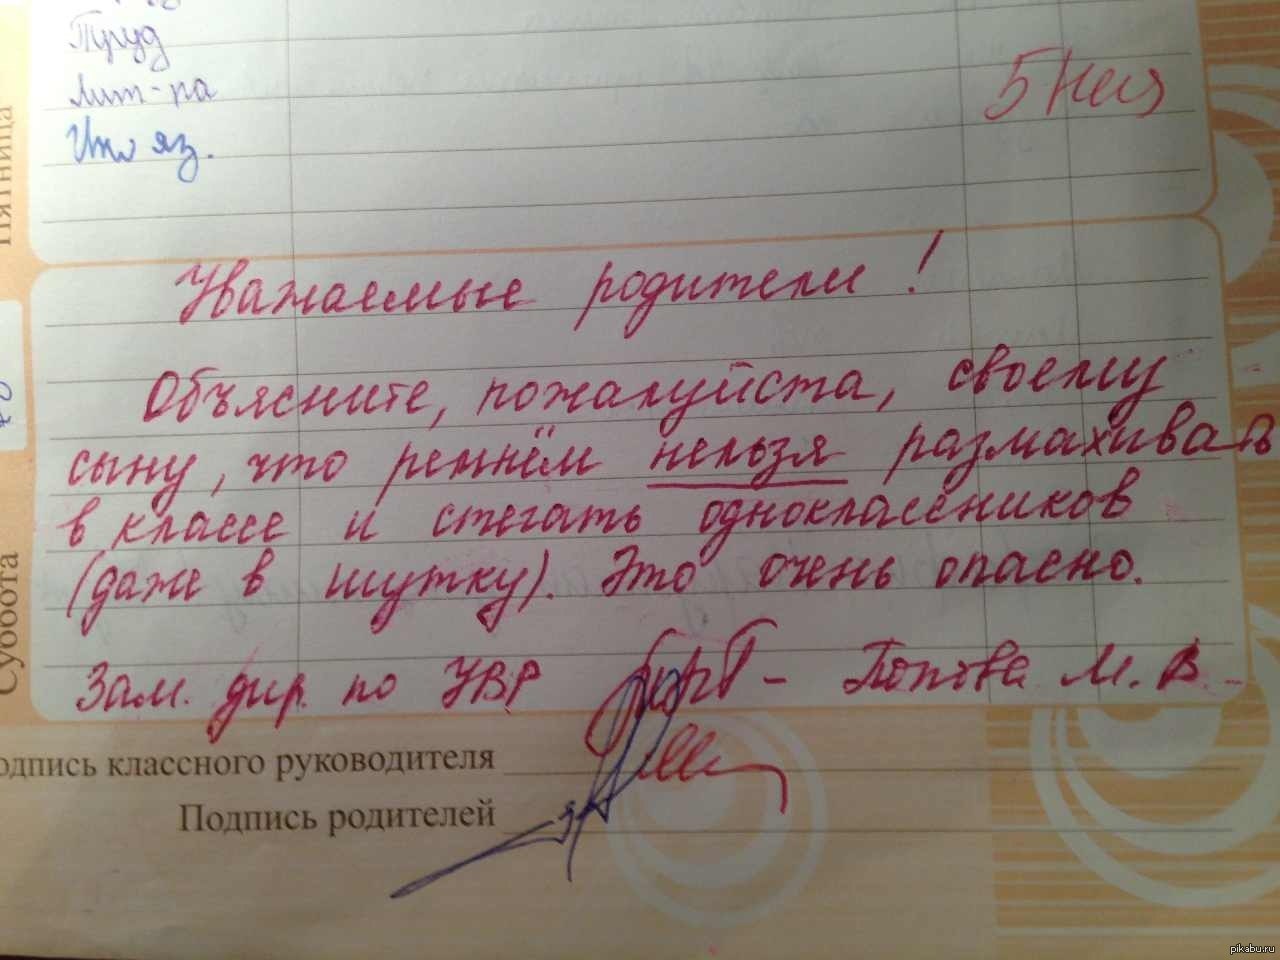 Труд
Лит-ра
Ин яз.
5
Пятница
Уважаемые родители!
Объясните, пожалуйста, своему
сыну, что ремнём нельзя размахивать
в классе и стегать одноклассников
(даже в шутку). Это очень опасно.
Зам. дир. по УВР - Попова М. В.
Суббота
одпись классного руководителя
Подпись родителей
pikabu.ru